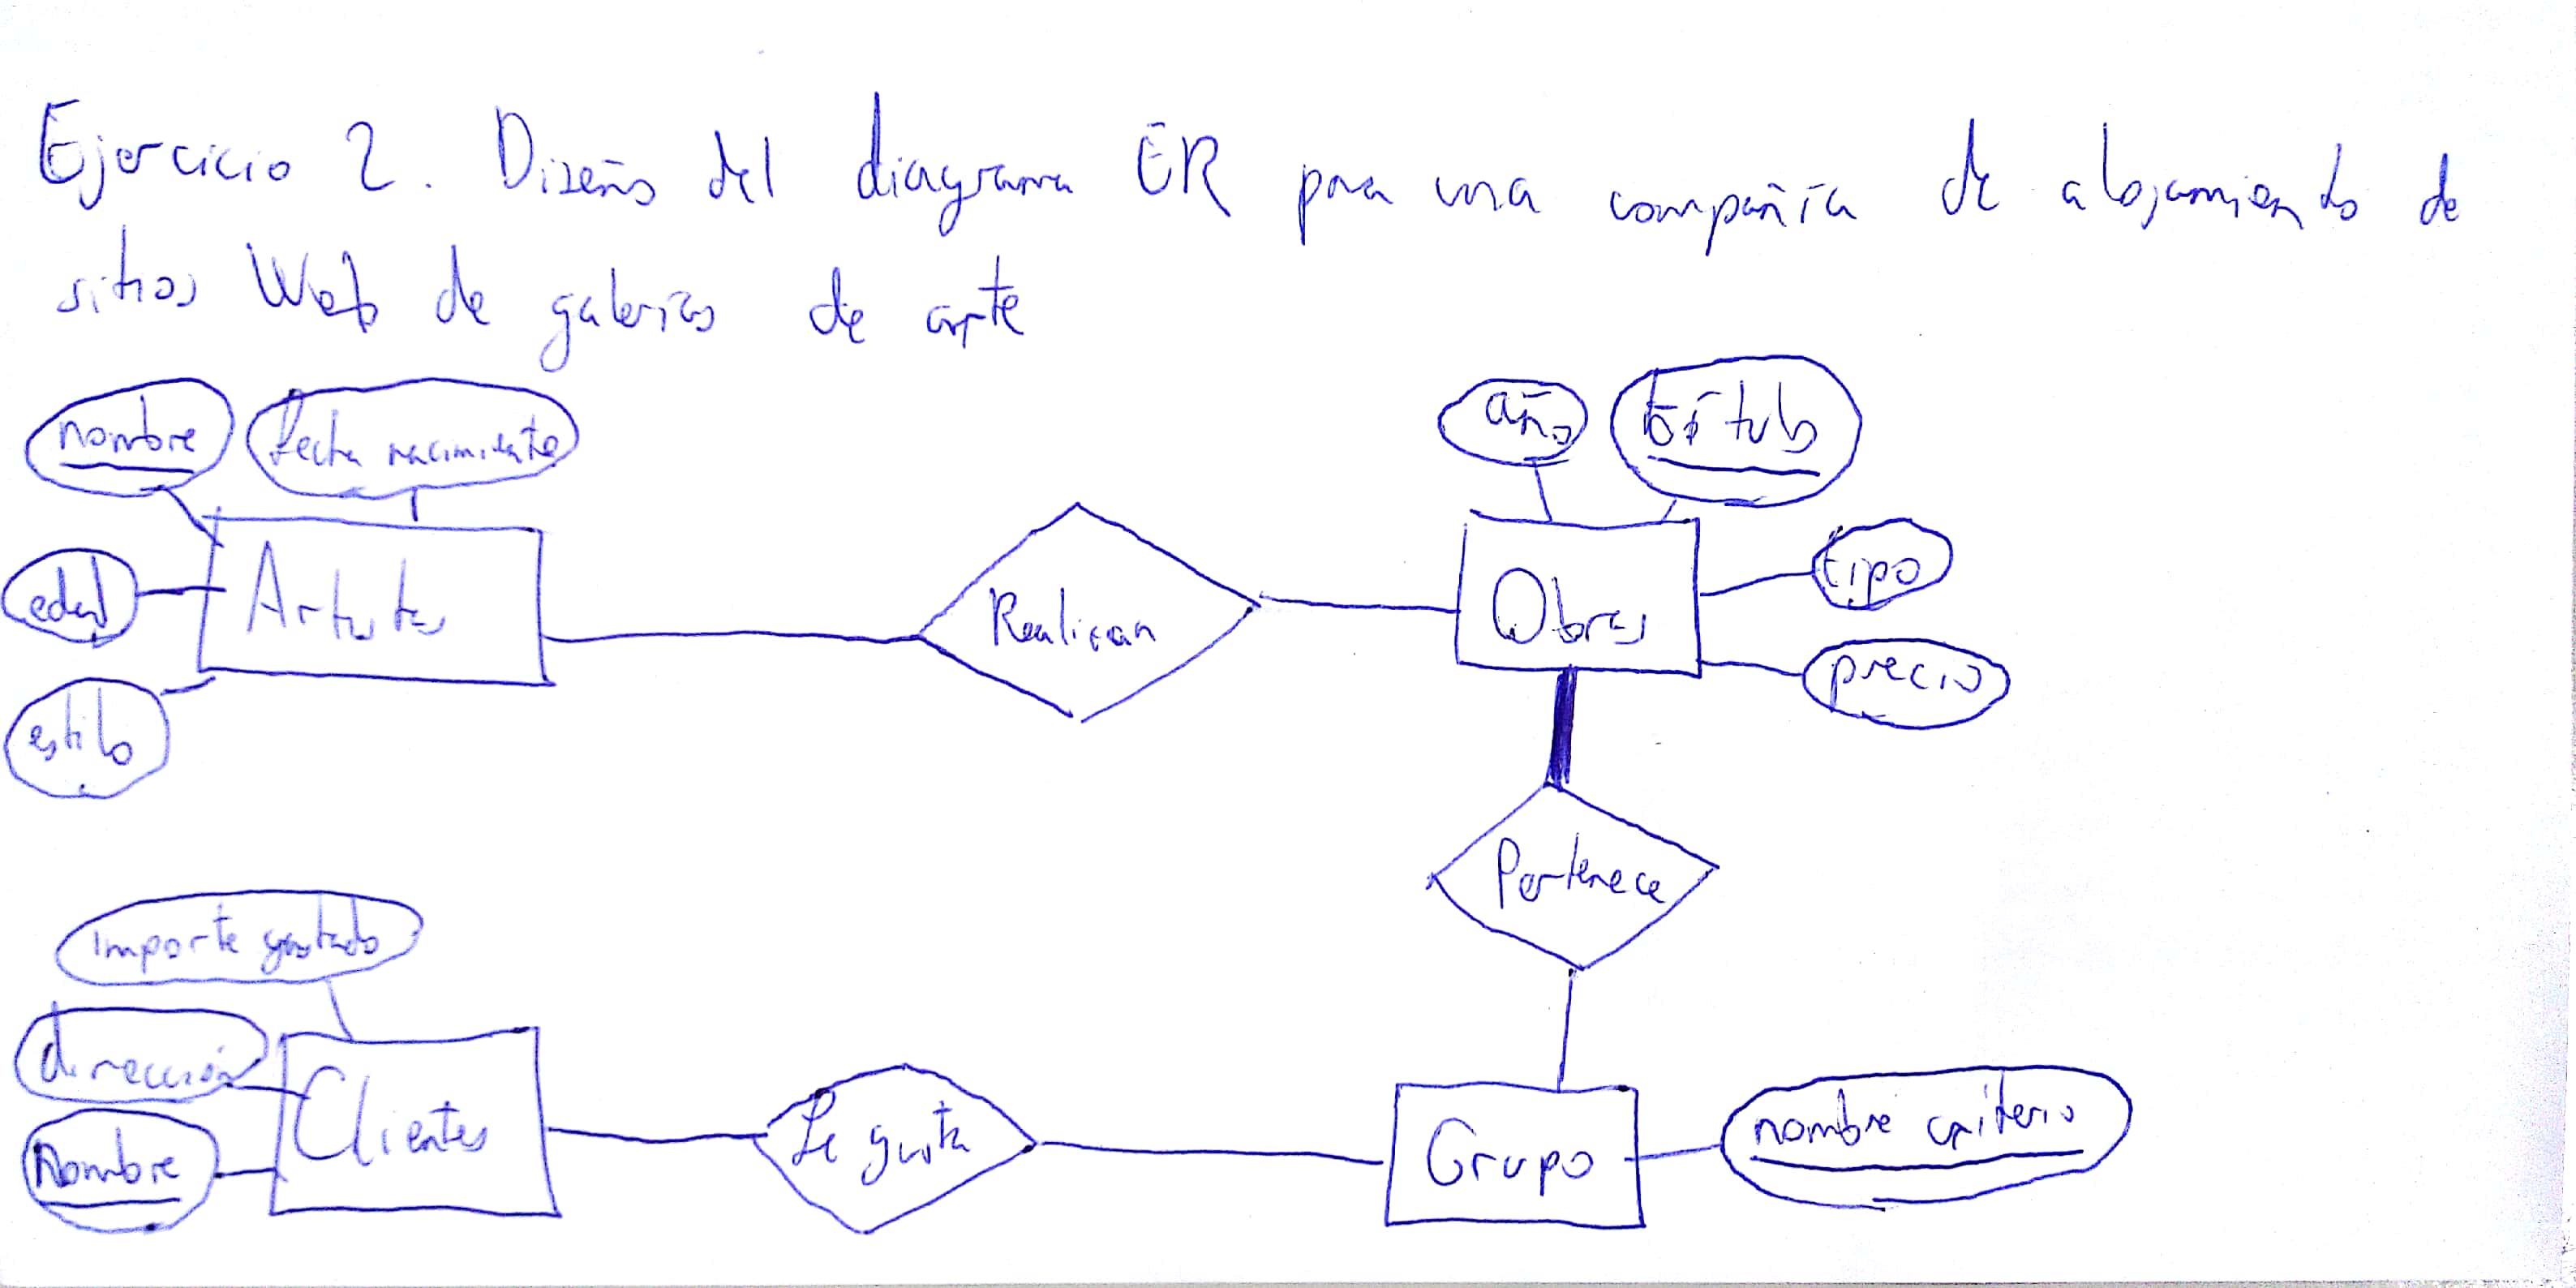 Ejercicio 2. Diseño del diagrama ER para una compañía de alojamiento de
sitios Web de galerías de arte
nombre
fecha nacimiento
edad
Artistas
estilo
Realizan
año
título
Obras
tipo
precio
Pertenece
importe gastado
dirección
Nombre
Clientes
Le gusta
Grupo
nombre criterio